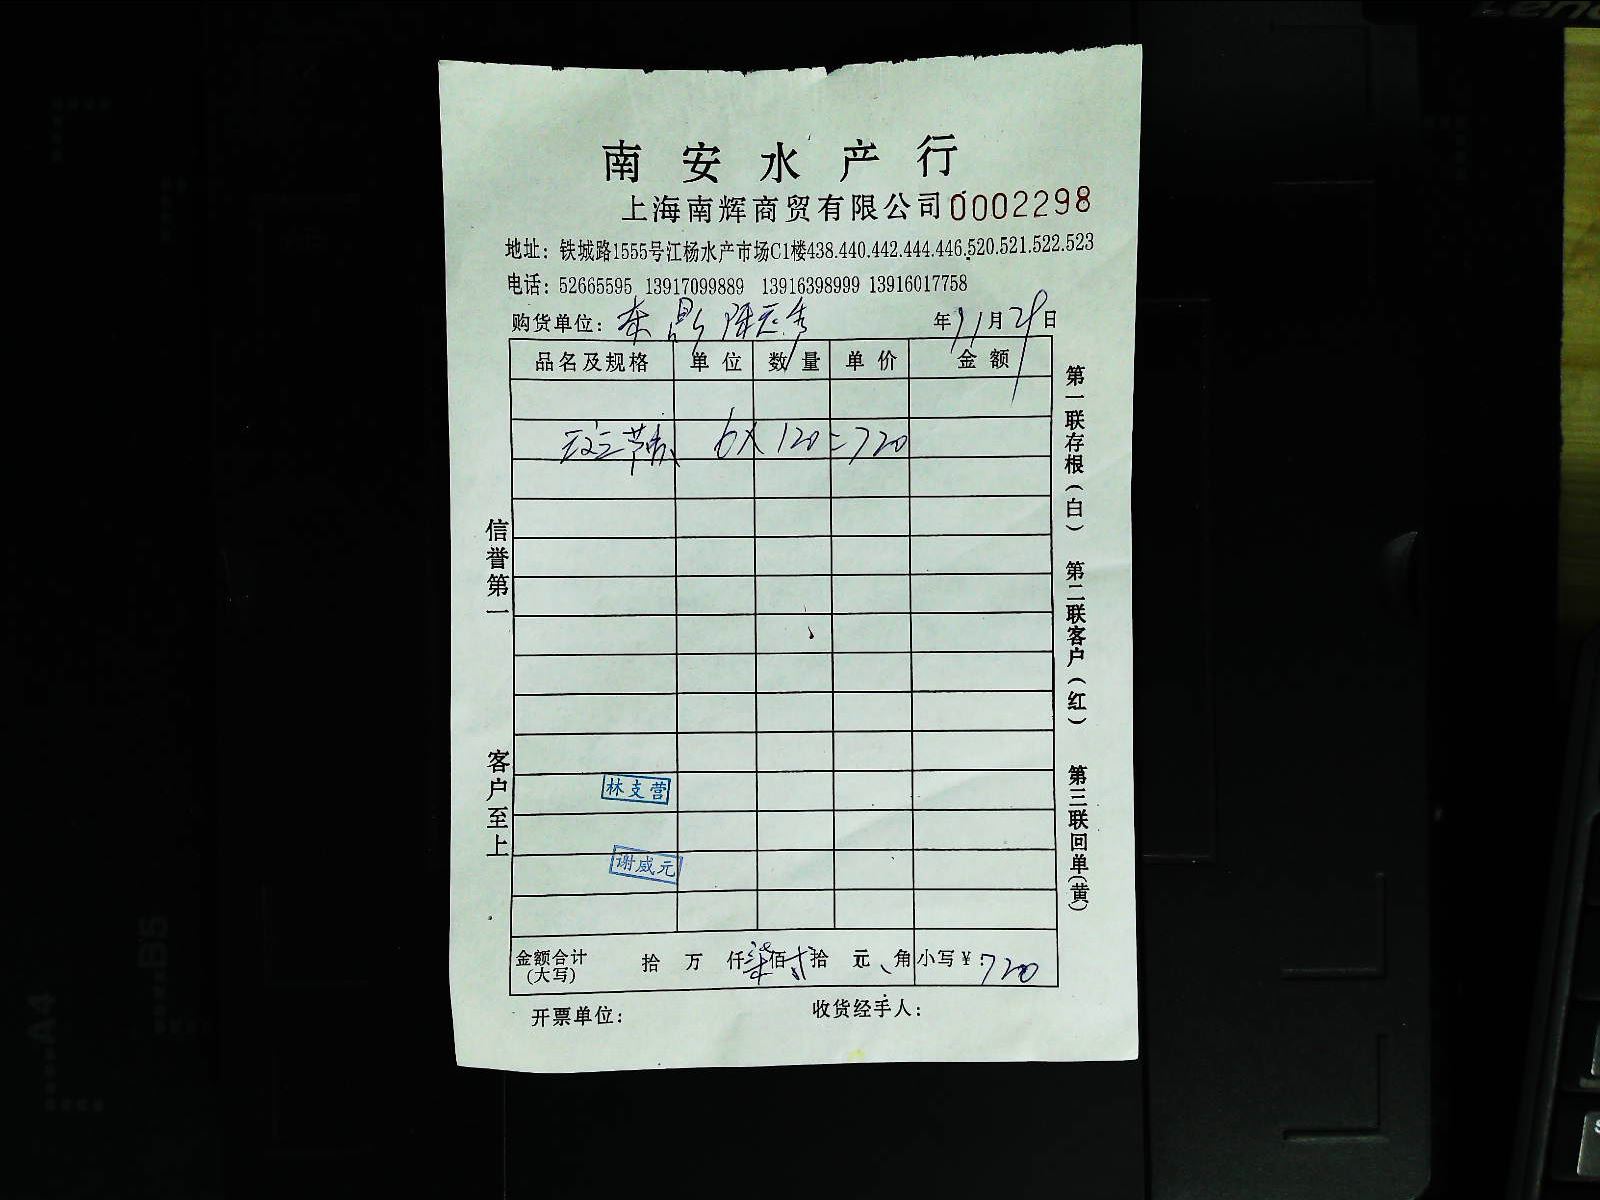 南安水产行
上海南辉商贸有限公司 0002298
地址：铁城路1555号江杨水产市场C1楼438.440.442.444.446.520.521.522.523
电话：52665595 13917099889 13916398999 13916017758
购货单位： 年 11月29日
品名及规格 单位 数量 单价 金额
斑节 6×120=720
林支营
谢威元
金额合计 拾 万 仟柒佰贰拾 元 角 小写￥：720
(大写)
开票单位： 收货经手人：
信誉第一
客户至上
第一联存根（白）
第二联客户（红）
第三联回单（黄）
A4
B5